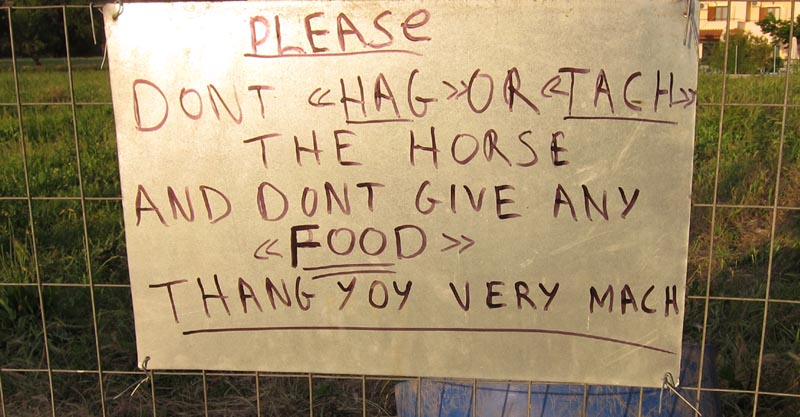 PLEASE
DONT «HAG» OR «TACH»
THE HORSE
AND DONT GIVE ANY
«FOOD»
THANG YOY VERY MACH